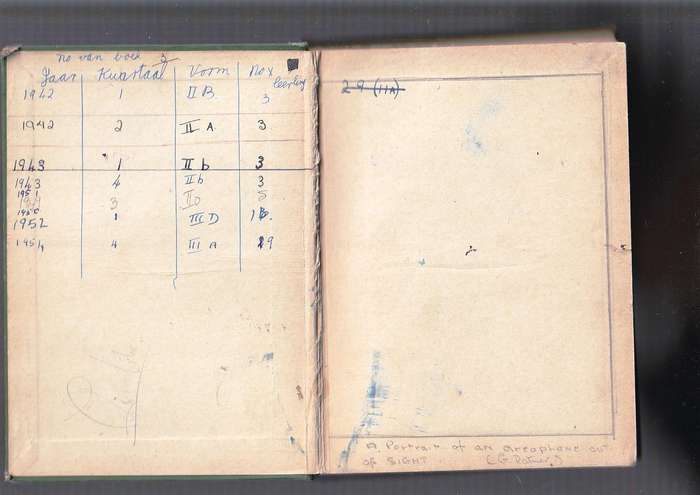 no van boek
Jaar Kwartaal Vorm No v
leerling
1942 1 II B. 3
1942 2 II A 3
1943 1 II b 3
1943 4 II b 3
1951 3 5
1952 1 III D
1954 4 III A 19
29 (IIA)
A Portrait of an areoplane out
of SIGHT